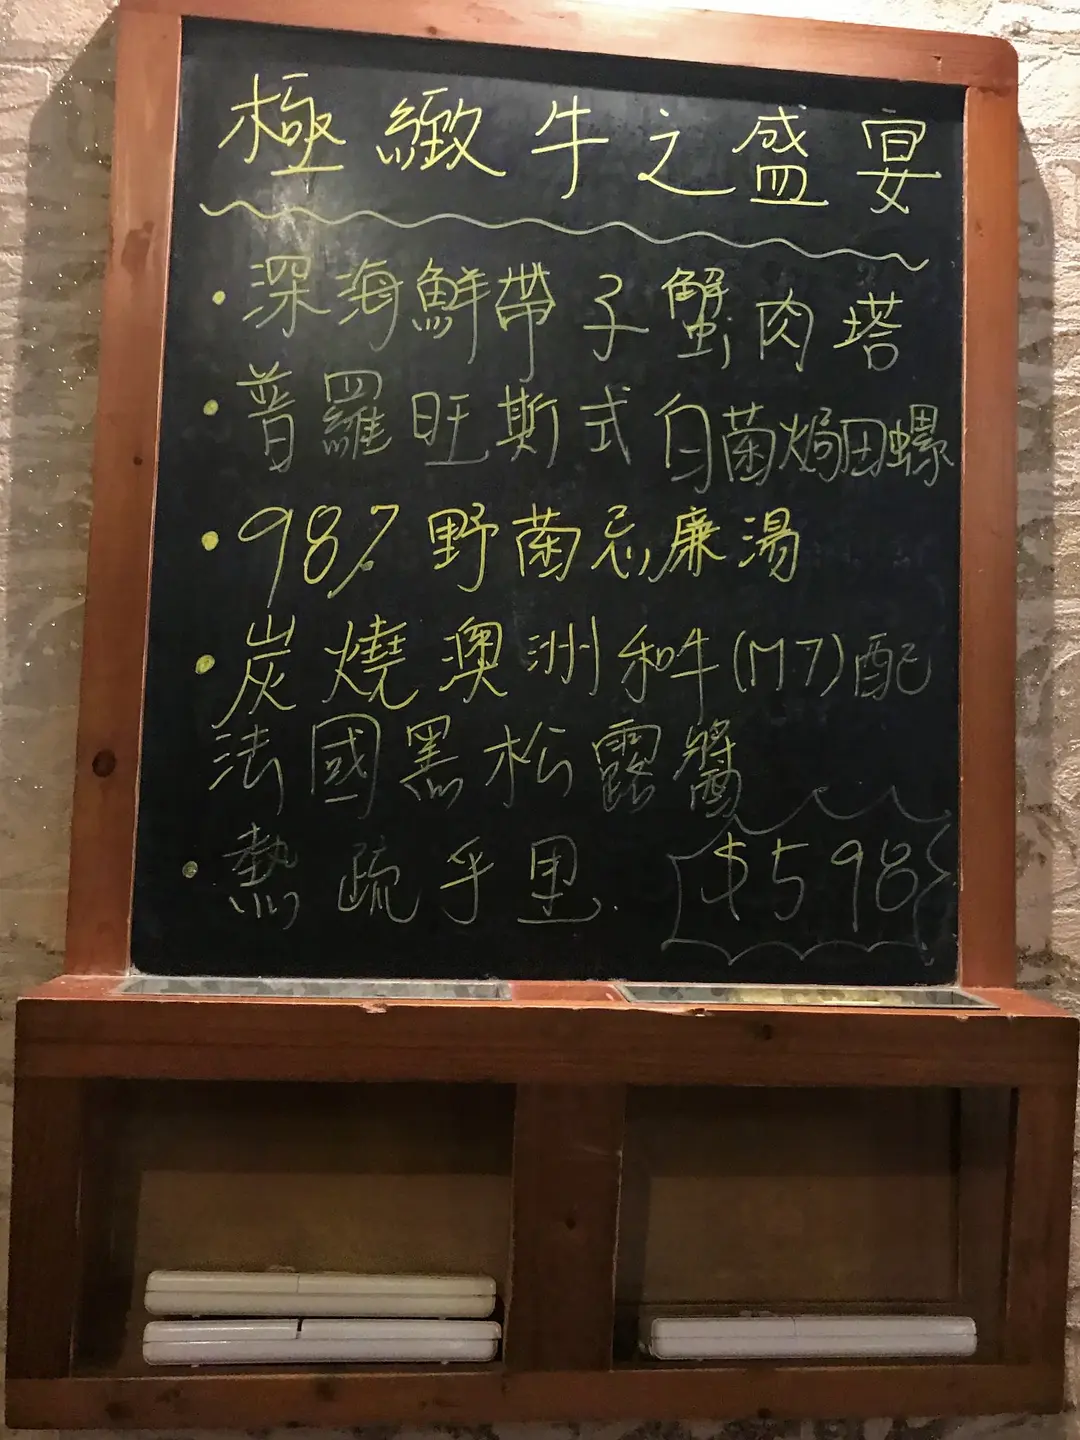 極緻牛之盛宴
• 深海鮮帶子蟹肉塔
• 普羅旺斯式白菌焗田螺
• 98% 野菌忌廉湯
• 炭燒澳洲和牛(M7)配
法國黑松露醬
• 熱疏乎厘.
$598